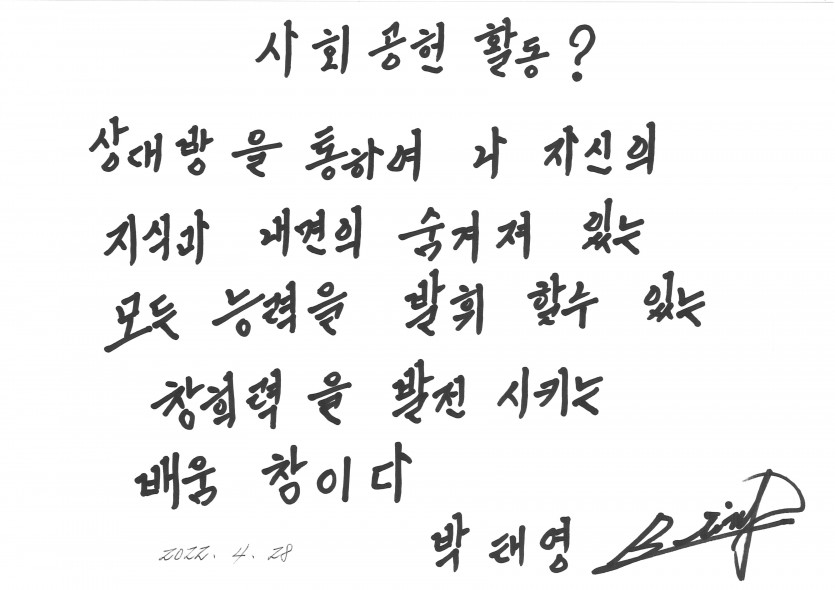 사회공헌 활동?
상대방을 통하여 나 자신의
지식과 내면의 숨겨져 있는
모든 능력을 발휘 할수 있는
창희력을 발전 시키는
배움 참이다
박태영
2022. 4. 28